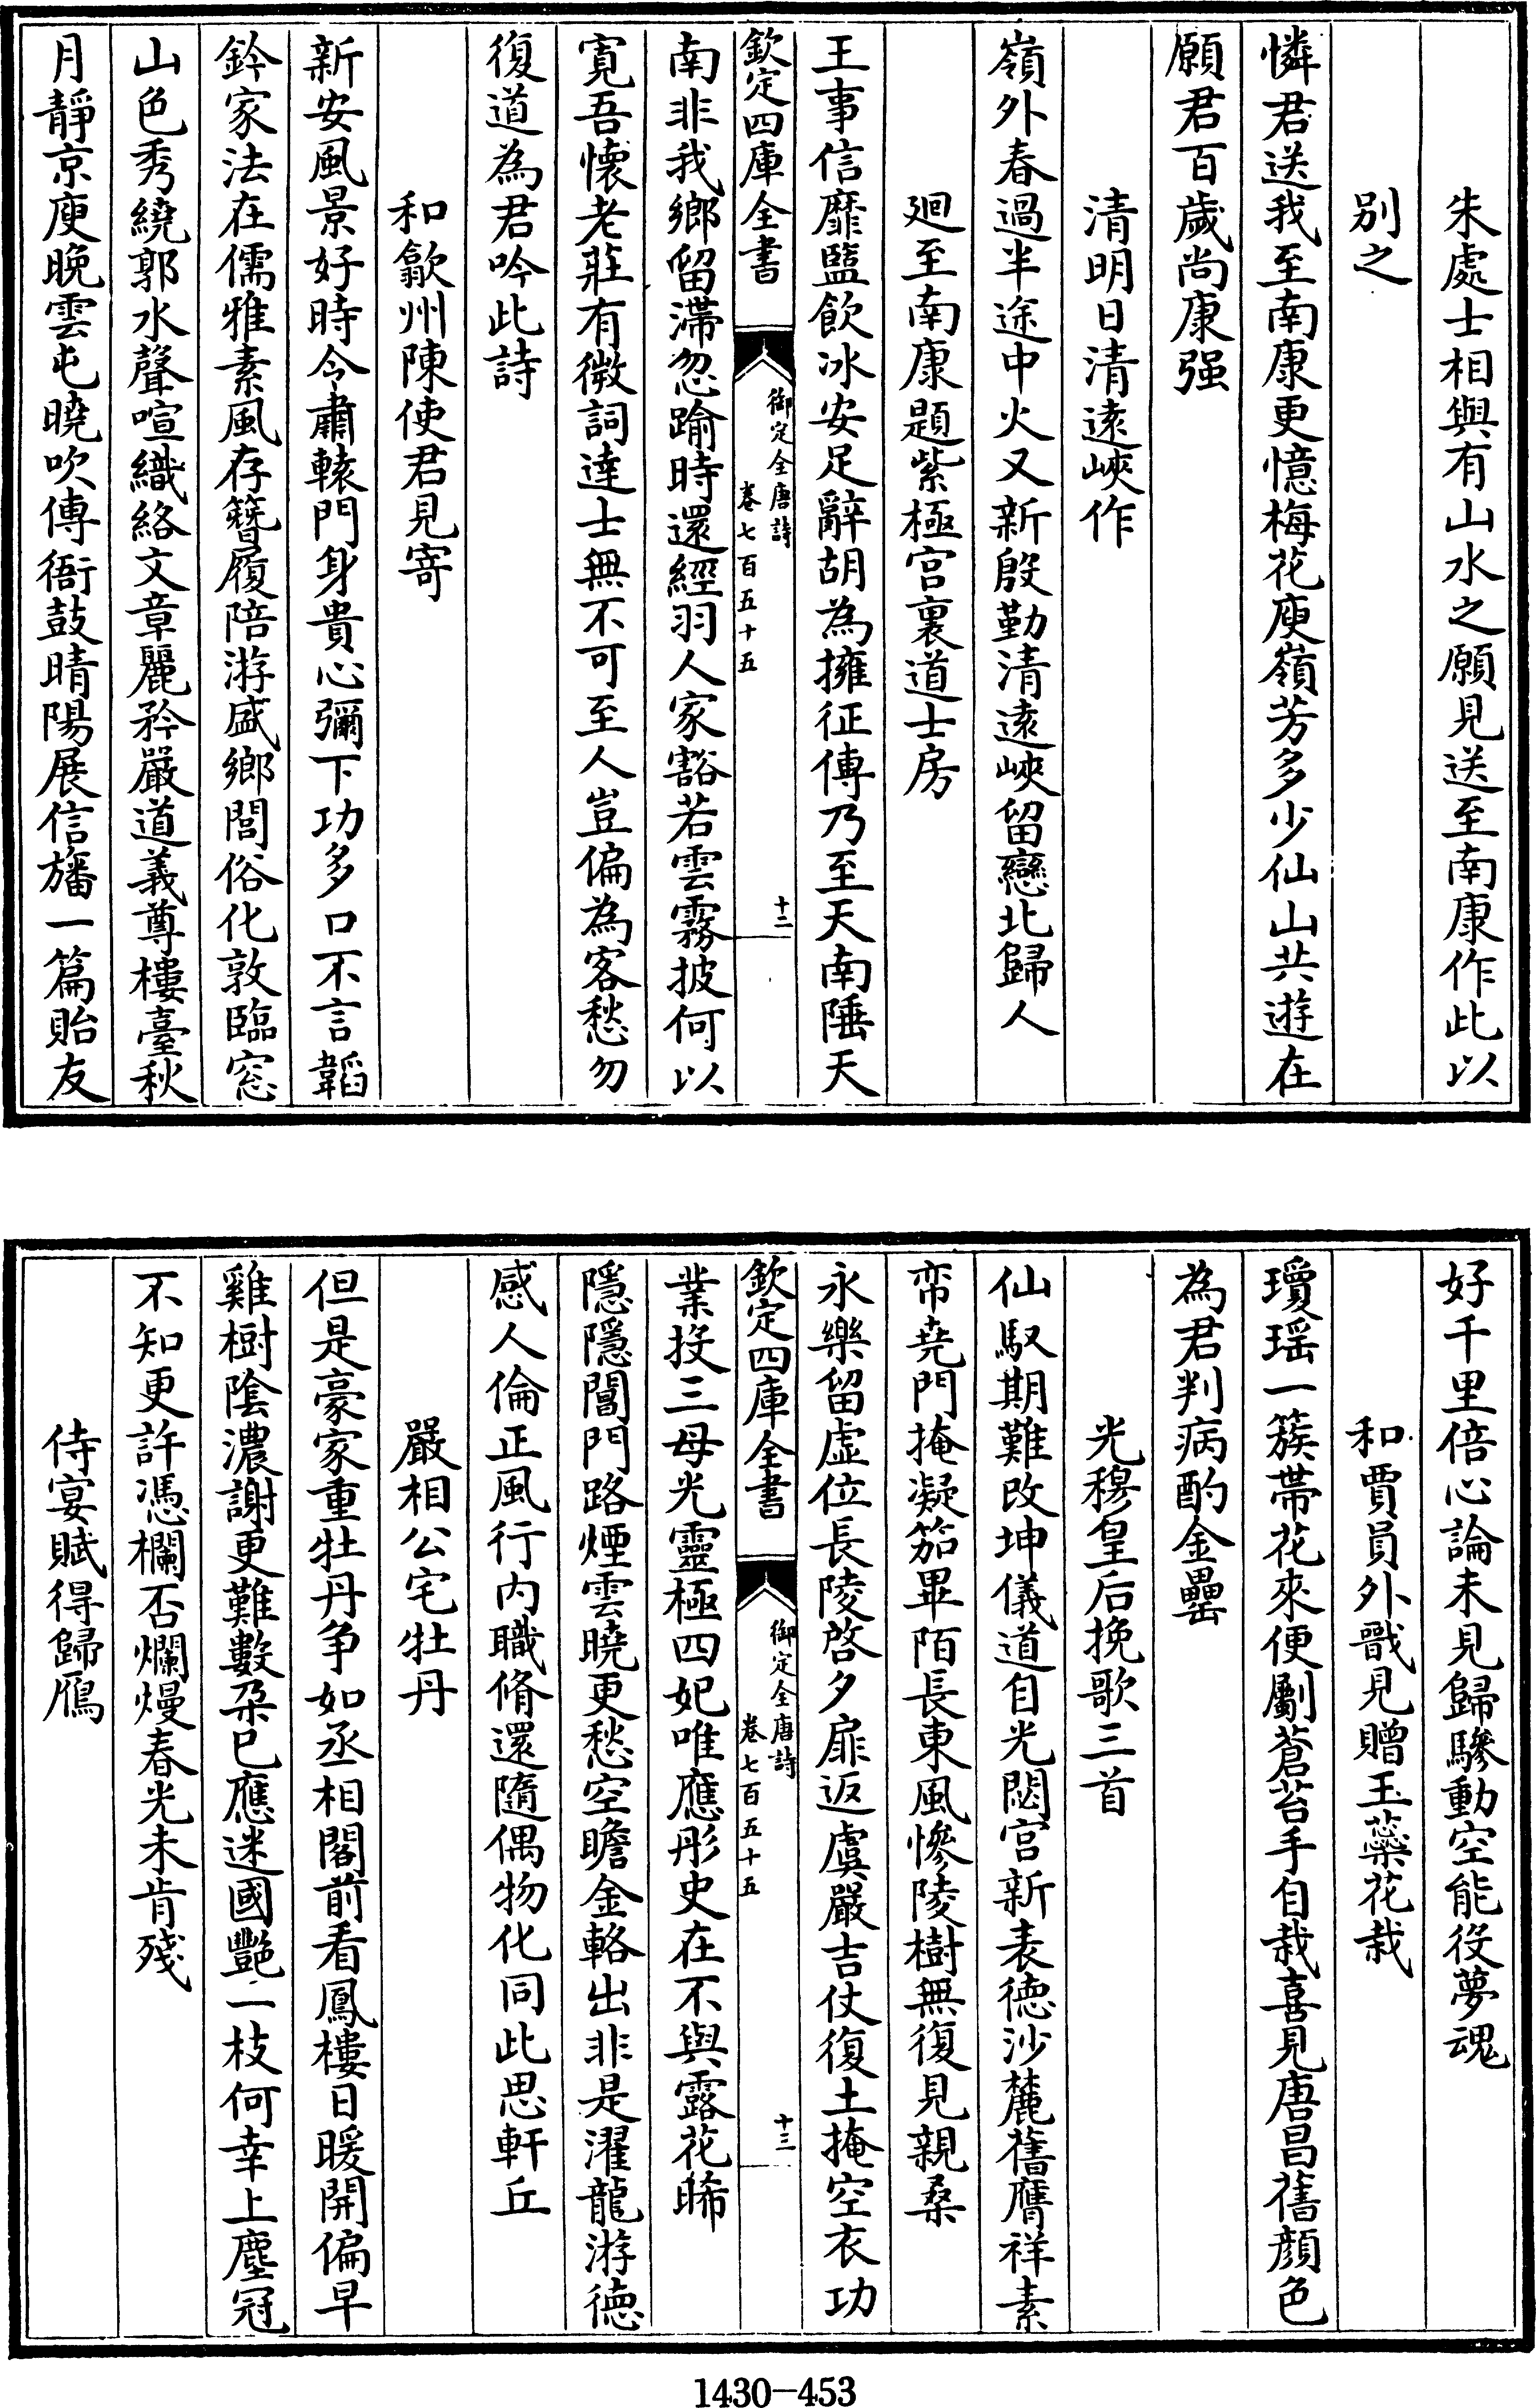 朱處士相與有山水之願見送至南康作此以
別之
憐君送我至南康更憶梅花庾嶺芳多少仙山共遊在
願君百歲尚康强
清明日清逺峽作
嶺外春過半途中火又新殷勤清逺峽留戀北歸人
廻至南康題紫極宮裏道士房
王事信靡盬飲冰安足辭胡為擁征傳乃至天南陲天
欽定四庫全書
御定全唐詩
卷七百五十五
十二
南非我鄉留滯忽踰時還經羽人家豁若雲霧披何以
寛吾懷老莊有微詞達士無不可至人豈偏為客愁勿
復道為君吟此詩
和歙州陳使君見寄
新安風景好時令肅轅門身貴心彌下功多口不言韜
鈐家法在儒雅素風存簪履陪游盛鄉閭俗化敦臨窓
山色秀繞郭水聲喧織絡文章麗矜嚴道義尊樓臺秋
月靜京庾晚雲屯曉吹傳衙鼓晴陽展信旛一篇貽友
好千里倍心論未見歸驂動空能役夢魂
和賈員外戩見贈玉蘂花栽
瓊瑶一簇帶花來便劚蒼苔手自栽喜見唐昌舊顔色
為君判病酌金罍
光穆皇后挽歌三首
仙馭期難改坤儀道自光閟宮新表德沙麓舊膺祥素
帟堯門掩凝笳畢陌長東風慘陵樹無復見親桑
永樂留虛位長陵啓夕扉返虞嚴吉仗復土掩空衣功
業投三母光靈極四妃唯應彤史在不與露花晞
隱隱閶門路煙雲曉更愁空瞻金輅出非是濯龍游德
感人倫正風行内職脩還隨偶物化同此思軒丘
嚴相公宅牡丹
但是豪家重牡丹争如丞相閤前看鳳樓日暖開偏早
雞樹陰濃謝更難數朶已應迷國豔一枝何幸上塵冠
不知更許憑欄否爛熳春光未肯殘
侍宴賦得歸鴈
1430—453